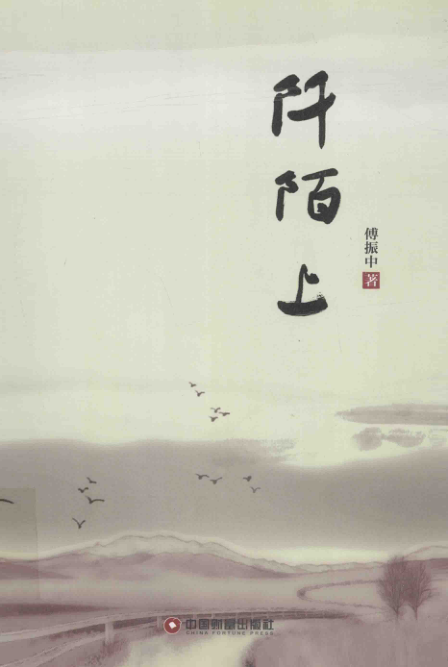 阡陌上
傅振中 著
中国财富出版社
CHINA FORTUNE PRESS